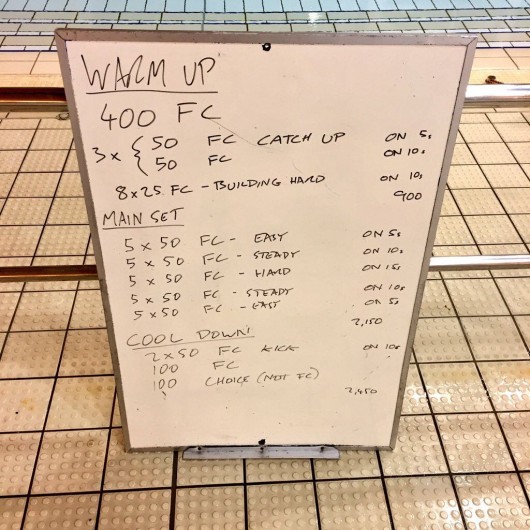 WARM UP
400 FC
3 x { 50 FC CATCH UP ON 5s
50 FC ON 10s
8x25 FC - BUILDING HARD ON 10s
900
MAIN SET
5 x 50 FC - EASY ON 5s
5 x 50 FC - STEADY ON 10s
5 x 50 FC - HARD ON 15s
5 x 50 FC - STEADY ON 10s
5 x 50 FC - EAST ON 5s
2,150
COOL DOWN
2x50 FC KICK ON 10s
100 FC
100 CHOICE (NOT FC)
2,450